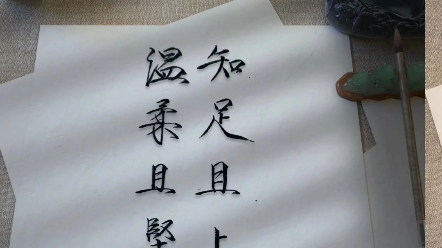 知足且上
温柔且堅